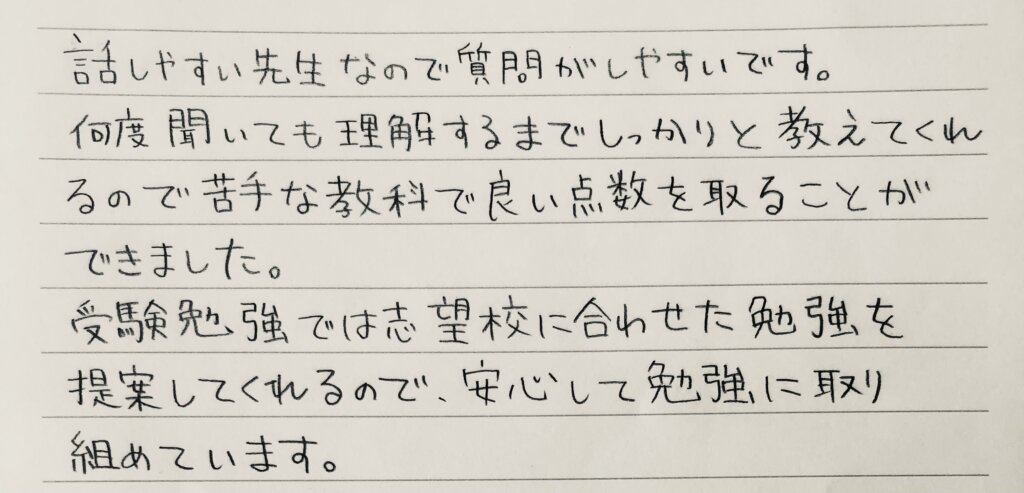 話しやすい先生なので質問がしやすいです。
何度聞いても理解するまでしっかりと教えてくれ
るので苦手な教科で良い点数を取ることが
できました。
受験勉強では志望校に合わせた勉強を
提案してくれるので、安心して勉強に取り
組めています。